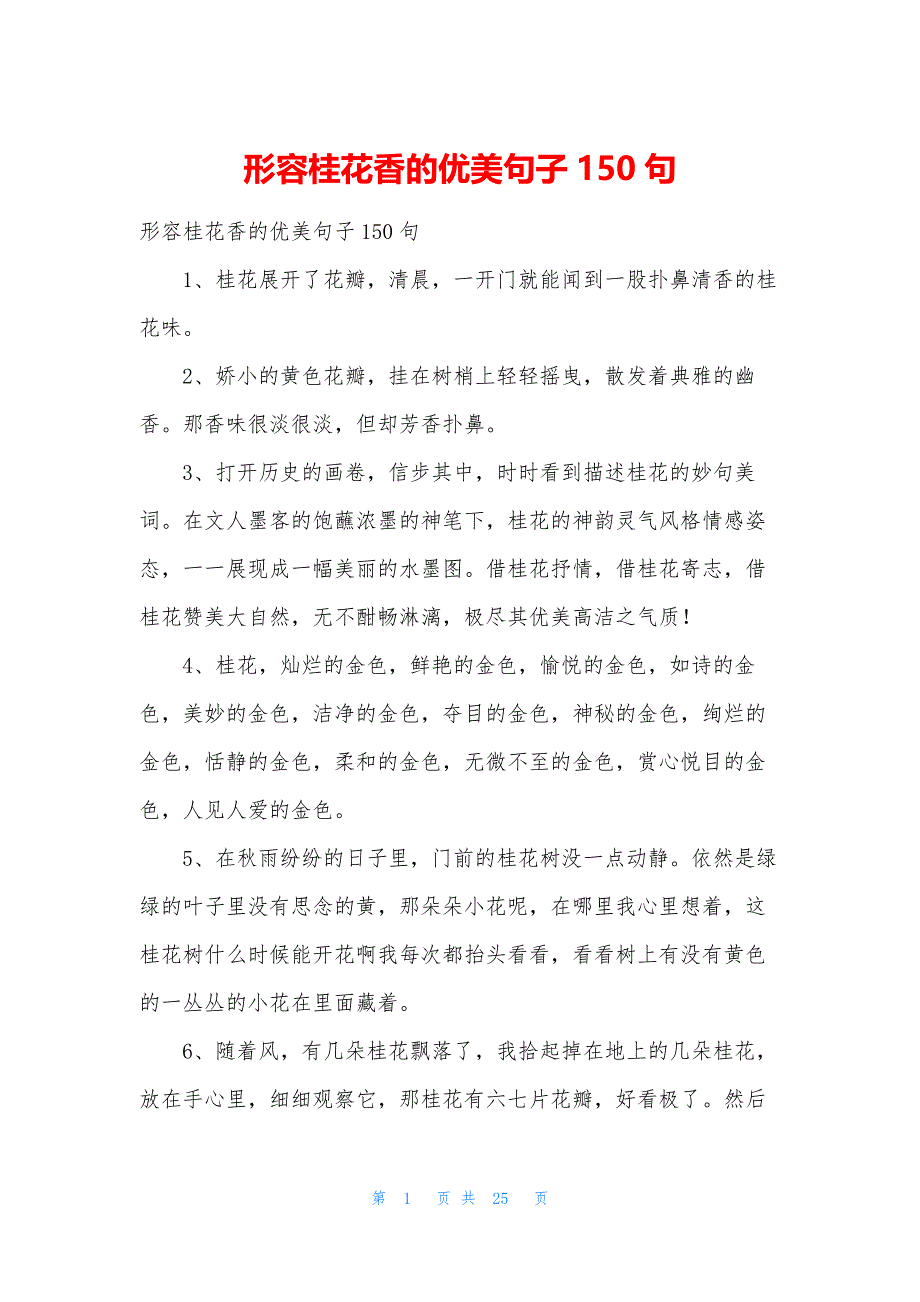 形容桂花香的优美句子 150 句
形容桂花香的优美句子 150 句
1、桂花展开了花瓣，清晨，一开门就能闻到一股扑鼻清香的桂
花味。
2、娇小的黄色花瓣，挂在树梢上轻轻摇曳，散发着典雅的幽
香。那香味很淡很淡，但却芳香扑鼻。
3、打开历史的画卷，信步其中，时时看到描述桂花的妙句美
词。在文人墨客的饱蘸浓墨的神笔下，桂花的神韵灵气风格情感姿
态，一一展现成一幅美丽的水墨图。借桂花抒情，借桂花寄志，借
桂花赞美大自然，无不酣畅淋漓，极尽其优美高洁之气质！
4、桂花，灿烂的金色，鲜艳的金色，愉悦的金色，如诗的金
色，美妙的金色，洁净的金色，夺目的金色，神秘的金色，绚烂的
金色，恬静的金色，柔和的金色，无微不至的金色，赏心悦目的金
色，人见人爱的金色。
5、在秋雨纷纷的日子里，门前的桂花树没一点动静。依然是绿
绿的叶子里没有思念的黄，那朵朵小花呢，在哪里我心里想着，这
桂花树什么时候能开花啊我每次都抬头看看，看看树上有没有黄色
的一丛丛的小花在里面藏着。
6、随着风，有几朵桂花飘落了，我拾起掉在地上的几朵桂花，
放在手心里，细细观察它，那桂花有六七片花瓣，好看极了。然后
第 1 页 共 25 页